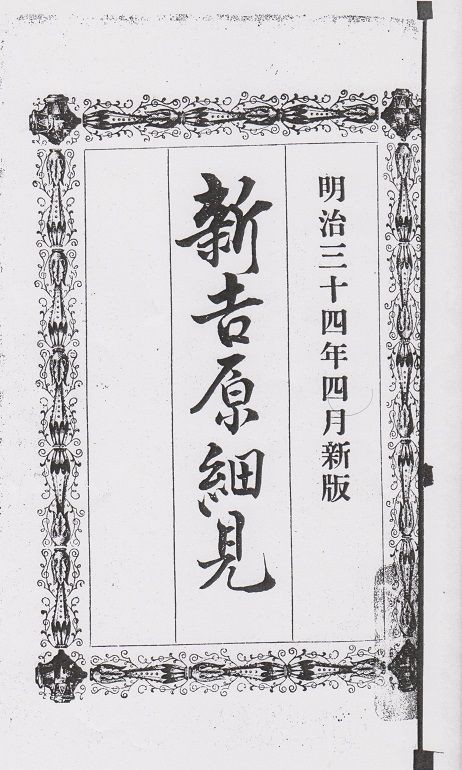 明治三十四年四月新版
新吉原細見